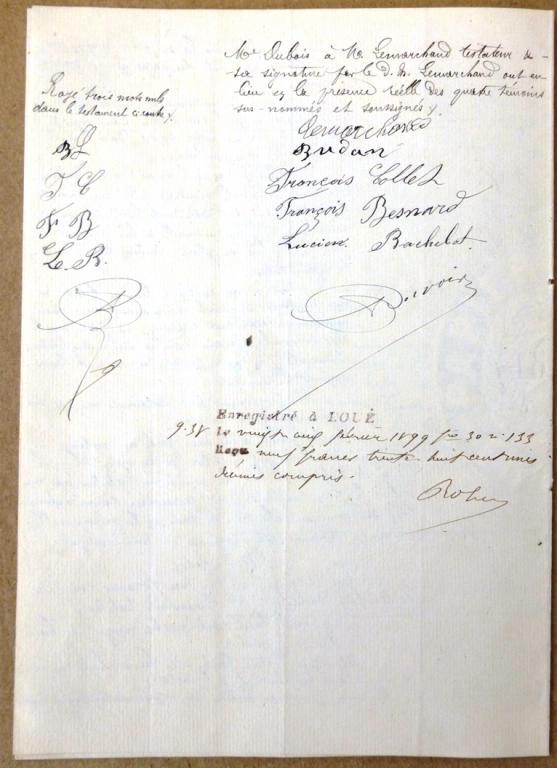 Me Dubois à M. Lemarchand testateur de
sa signature par le d. M. Lemarchand ont eu
lieu en la présence réelle des quatre témoins
sus-nommés et soussignés.
Rayé trois mots nuls
dans le testament ci contre.
Lemarchand
Budan
François Collet
François Besnard
Lucien Bachelot
BL
F C
F B
L. B.
Enregistré à LOUÉ
le vingt six février 1899 fo 30 c. 133
9.38 Reçu neuf francs trente huit centimes
décimes compris.